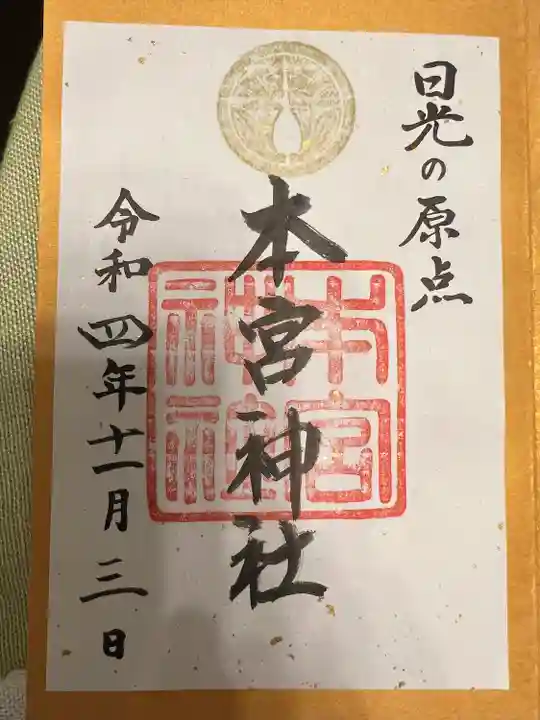 日光の原点
本宮神社
本宮
神社
令和四年十一月三日